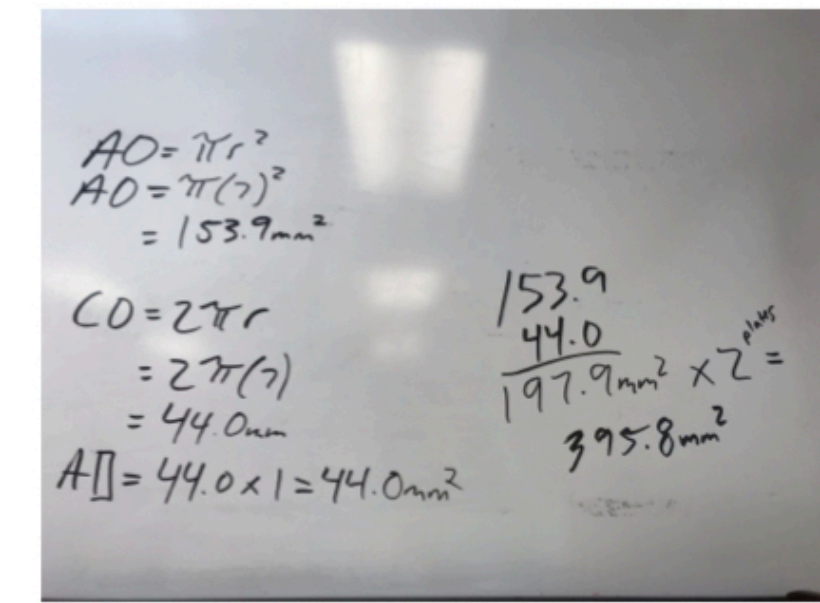 AO = πr²
AO = π(7)²
= 153.9mm²
CO = 2πr
= 2π(7)
= 44.0mm
A▯ = 44.0 x 1 = 44.0mm²
153.9
44.0
197.9mm² x 2 plates =
395.8mm²